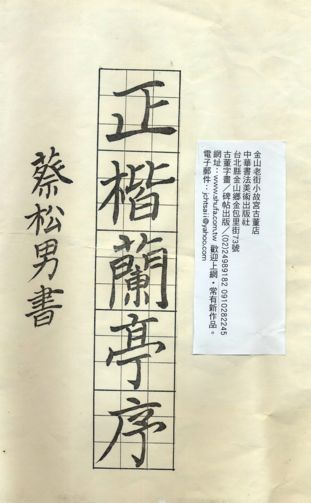 金山老街小故宮古董店
中華書法美術出版社
台北縣金山鄉金包里街73號
古董字畫/碑帖出版/(02)24989182 0910282245
網址:www.shufa.com.tw 歡迎上網,常有新作品。
電子郵件:jchtsaii@yahoo.com
正楷蘭亭序
蔡松男書